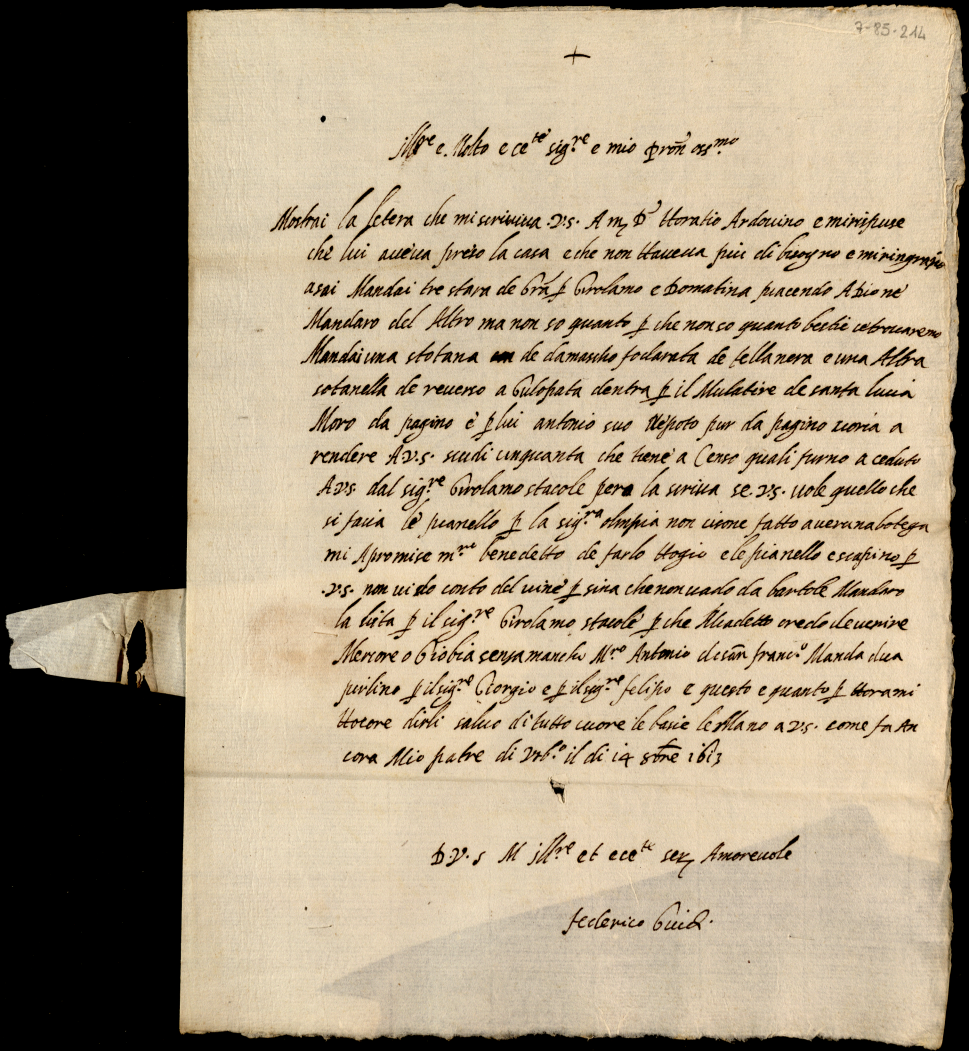 7-85-214
+
Illre e Molto ecete sigre e mio prōn ossmo
Mostrai la letera che mi scriviva .V.S. A Horatio Ardovino e mi rispuse
che lui aveva preso la casa e che non Haveva piu di bisogno e mi ringratio
asai Mandai tre stara de Gra p Girolamo e Domatina piacendo A Dio ne
Mandaro del Altro ma non so quanto p che non so quanto bestie ce trovaremo
Mandai una stotana de damascho foderata de tella nera e una Altra
sotanella de reverso a dentra p il Mulatire de santa lucia
Moro da pagino e p lui antonio suo Nepoto pur da pagino voria a
rendere A V.S. scudi cinquanta che tiene a Censo quali furno a ceduto
A V.S dal sigre Girolamo stacole pero la scriva se .V.S. vole quello che
si facia le pianello p la sigra olimpia non cisone fatto averuna botega
mi Apromise mre benedetto de farlo Hogie e le pianello e scapino p
.V.S. non vi do conto del vine p sina che non vado da bartole Mandaro
la lista p il sigre Girolamo stacole p che Miadetto credo de venire
Mercore o Giobia senza mancho Mre Antonio de san franco Manda dua
p il sigre Giorgio e p il sigre felipo e questo e quanto p Hora mi
Hocore dirli salvo di tutto cuore le basie le Mano a V.S. come fa An
cora Mio patre di Urbo il di 14 8bre 1613
D.V.S M Illre et ecete ser Amorevole
federico Guidi